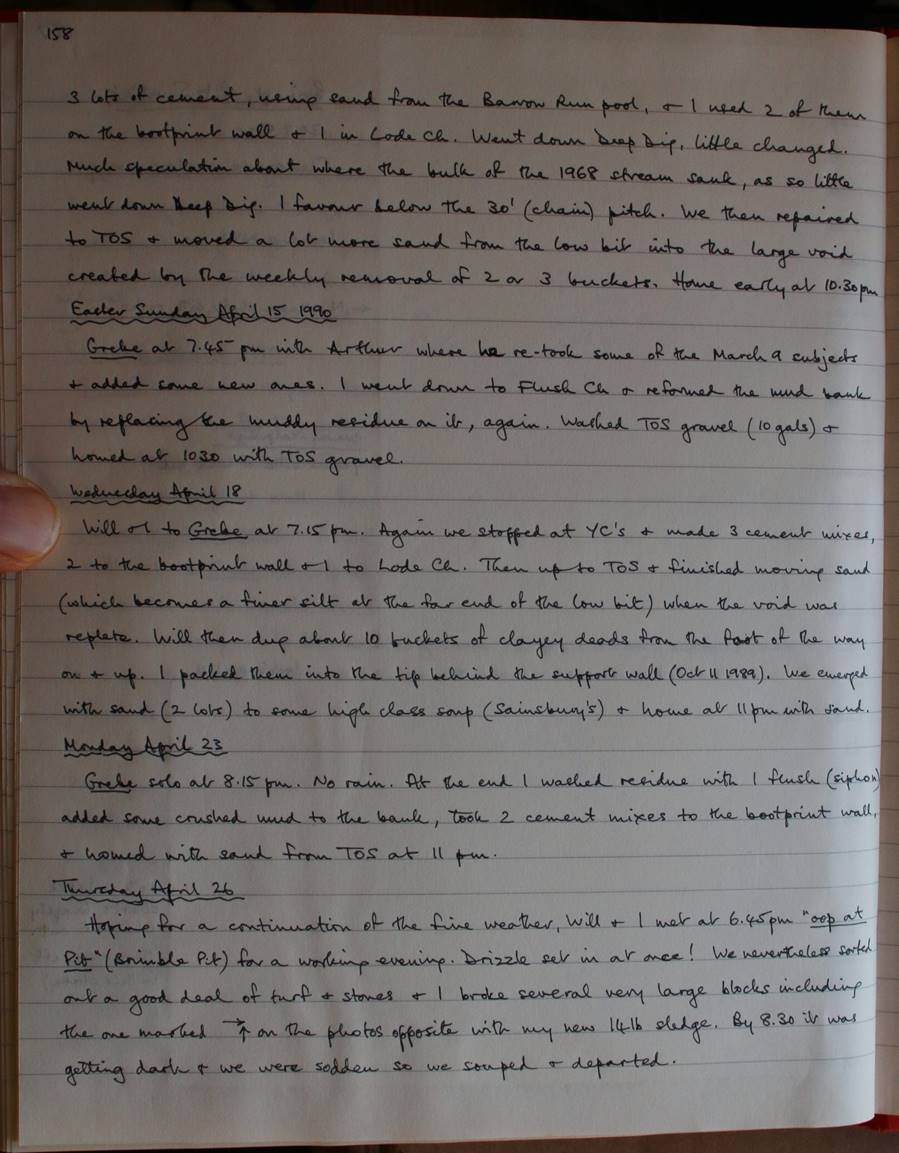 158
3 lots of cement, using sand from the Barrow Run pool, & I used 2 of them
on the bootprint wall & 1 in Lode Ch. Went down Deep Dig, little changed.
Much speculation about where the bulk of the 1968 stream sank, as so little
went down Deep Dig. I favour below the 30' (chain) pitch. We then repaired
to TOS & moved a lot more sand from the low bit into the large void
created by the weekly removal of 2 or 3 buckets. Home early at 10.30pm
Easter Sunday April 15 1990
Grebe at 7.45 pm with Arthur where he re-took some of the March 9 subjects
& added some new ones. I went down to Flush Ch & reformed the mud bank
by replacing the muddy residue on it, again. Washed TOS gravel (10 gals) &
homed at 1030 with TOS gravel.
Wednesday April 18
Will & I to Grebe at 7.15 pm. Again we stopped at YC's & made 3 cement mixes,
2 to the bootprint wall & 1 to Lode Ch. Then up to TOS & finished moving sand
(which becomes a finer silt at the far end of the low bit) when the void was
replete. Will then dug about 10 buckets of clayey deads from the foot of the way
on & up. I packed them into the tip behind the support wall (Oct 11 1989). We emerged
with sand (2 lots) to some high class soup (Sainsbury's) & home at 11pm with sand.
Monday April 23
Grebe solo at 8.15 pm. No rain. At the end I washed residue with 1 flush (siphon)
added some crushed mud to the bank, took 2 cement mixes to the bootprint wall,
& homed with sand from TOS at 11 pm.
Thursday April 26
Hoping for a continuation of the fine weather, Will & I met at 6.45pm "oop at
Pit" (Brimble Pit) for a working evening. Drizzle set in at once! We nevertheless sorted
out a good deal of turf & stones & I broke several very large blocks including
the one marked →↑ on the photos opposite with my new 14lb sledge. By 8.30 it was
getting dark & we were sodden so we souped & departed.